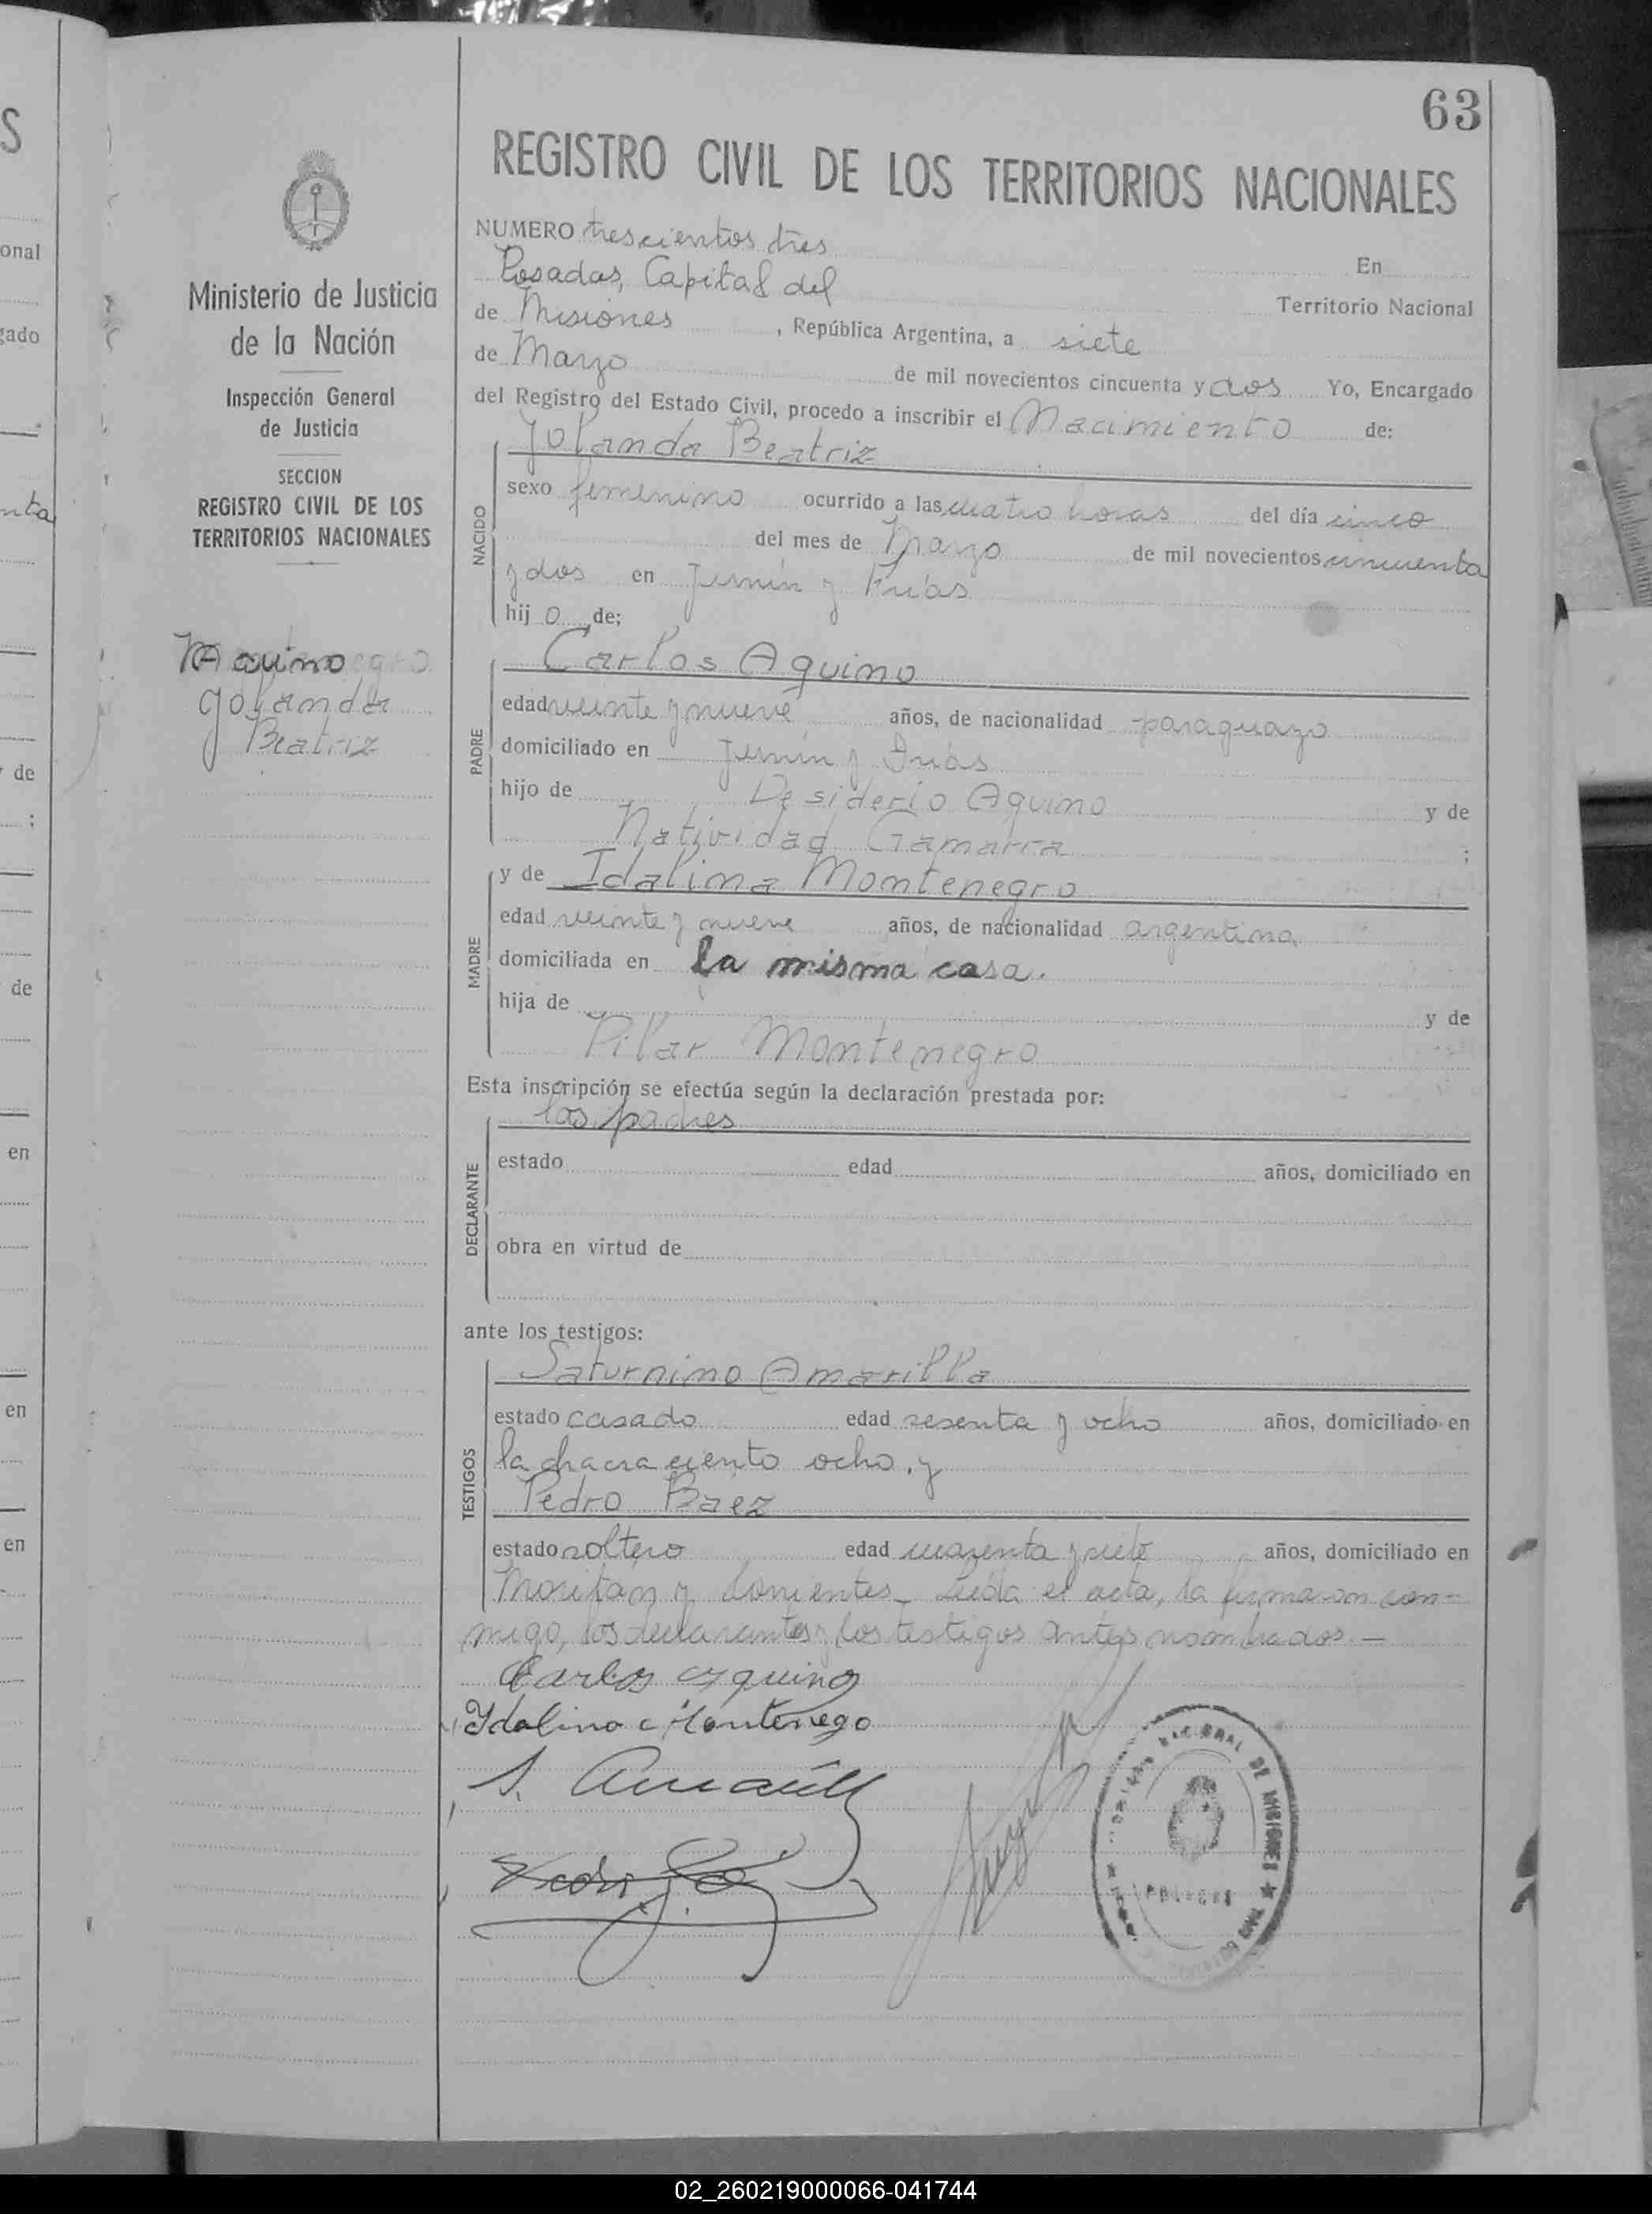 63
REGISTRO CIVIL DE LOS TERRITORIOS NACIONALES
Ministerio de Justicia
de la Nación
Inspección General
de Justicia
SECCION
REGISTRO CIVIL DE LOS
TERRITORIOS NACIONALES
Aquino
Yolanda
Beatriz
NUMERO trescientos tres
En
Posadas, Capital del Territorio Nacional
de Misiones, República Argentina, a siete
de Marzo de mil novecientos cincuenta y dos Yo, Encargado
del Registro del Estado Civil, procedo a inscribir el Nacimiento de:
NACIDO
Yolanda Beatriz
sexo femenino ocurrido a las cuatro horas del día cinco
del mes de Marzo de mil novecientos cincuenta
y dos en Junín y Frías
hij o de;
PADRE
Carlos Aquino
edad veinte y nueve años, de nacionalidad paraguayo
domiciliado en Junín y Frías
hijo de Desiderio Aquino y de
Natividad Gamarra ;
MADRE
y de Idalina Montenegro
edad veinte y nueve años, de nacionalidad argentina
domiciliada en la misma casa.
hija de y de
Pilar Montenegro
Esta inscripción se efectúa según la declaración prestada por:
DECLARANTE
los padres
estado edad años, domiciliado en
obra en virtud de
ante los testigos:
TESTIGOS
Saturnino Amarilla
estado casado edad sesenta y ocho años, domiciliado en
la chacra ciento ocho, y
Pedro Baez
estado soltero edad cuarenta y siete años, domiciliado en
y Corrientes_ Leída el acta, la firmaron con-
migo, los declarantes y los testigos antes nombrados.—
Carlos Aquino
Ydalina Montenego
S. Amarilla
DE MISIONES
02_260219000066-041744